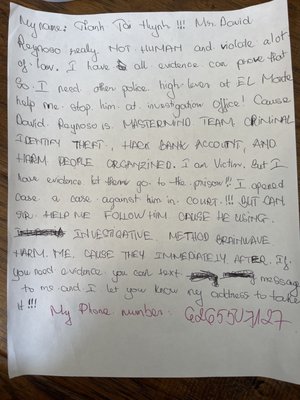 My name: Thanh Tai Huynh !!! Mr. David
Reynoso really NOT HUMAN and violate alot
of law. I have all evidence can prove that
So I need other police high level at EL Monte
help me stop him at investigation office! Cause
David Reynoso is MASTERMIND TEAM CRIMINAL
IDENTIFY THEFT, HACK BANK ACCOUNT, AND
HARM PEOPLE ORGANZINED. I am Victim. But I
have evidence let them go to the prison!!! I opened
case a case against him in COURT.!!! BUT CAN
SIR HELP ME FOLLOW HIM CAUSE HE USING
INVESTIGATIVE METHOD BRAINWAVE
HARM ME. CAUSE THEY IMMEDIATELY AFTER. If
you need evidence you can text message
to me and I let you know my address to take
it !!!
My Phone number: